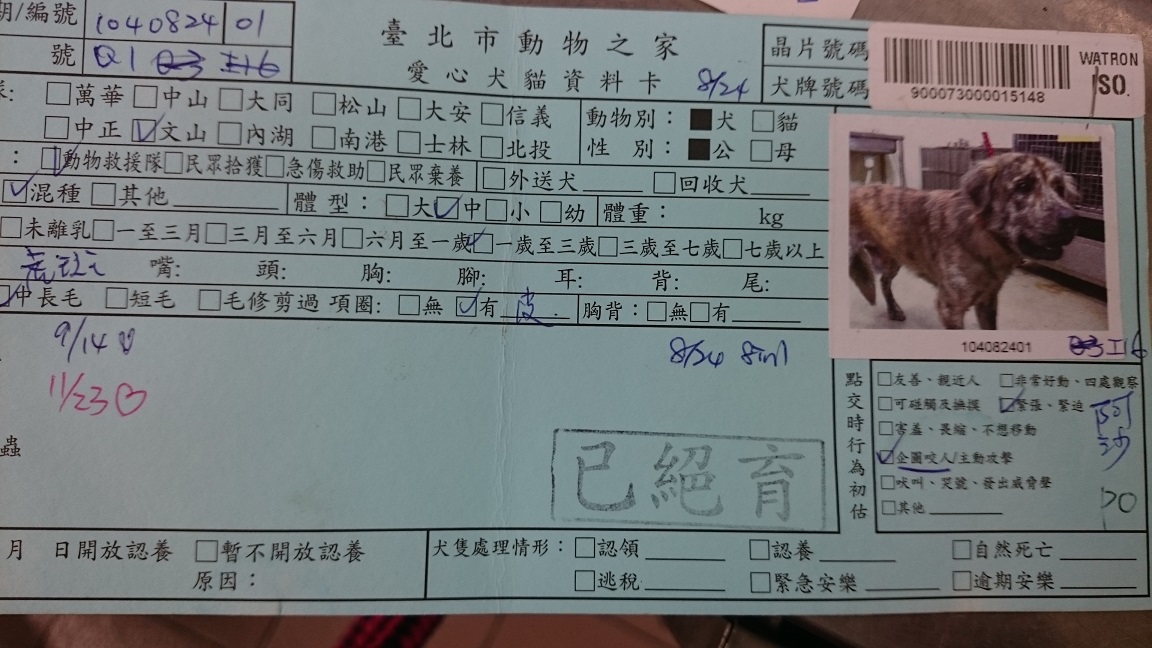 期/編號 1040824 01
臺北市動物之家
號 Q1 Q3 I16
愛心犬貓資料卡 8/24
晶片號碼
犬牌號碼
900073000015148
WATRON
ISO.
□萬華 □中山 □大同 □松山 □大安 □信義
□中正 ☑文山 □內湖 □南港 □士林 □北投
動物別：■犬 □貓
性 別：■公 □母
：☑動物救援隊□民眾拾獲□急傷救助□民眾棄養 □外送犬 □回收犬
☑混種 □其他 體型：□大☑中□小□幼 體重： kg
□未離乳□一至三月□三月至六月□六月至一歲☑一歲至三歲□三歲至七歲□七歲以上
虎斑 嘴: 頭: 胸: 腳: 耳: 背: 尾:
☑中長毛 □短毛 □毛修剪過 項圈：□無 ☑有 皮. 胸背：□無□有
104082401 Q3 I16
9/14
8/24 8in1
11/23♡
蟲
已絕育
點交時行為初估
□友善、親近人 □非常好動、四處觀察
□可碰觸及撫摸 ☑緊張、緊迫
□害羞、畏縮、不想移動
☑企圖咬人/主動攻擊
□吠叫、哭號、發出威脅聲
□其他
阿沙
月 日開放認養 □暫不開放認養
原因：
犬隻處理情形：□認領 □認養 □自然死亡
□逃脫 □緊急安樂 □逾期安樂